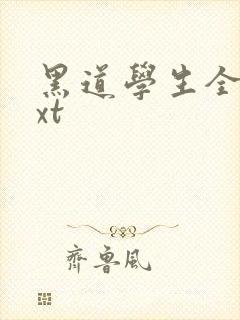 黑道學生全
xt
齊魯風